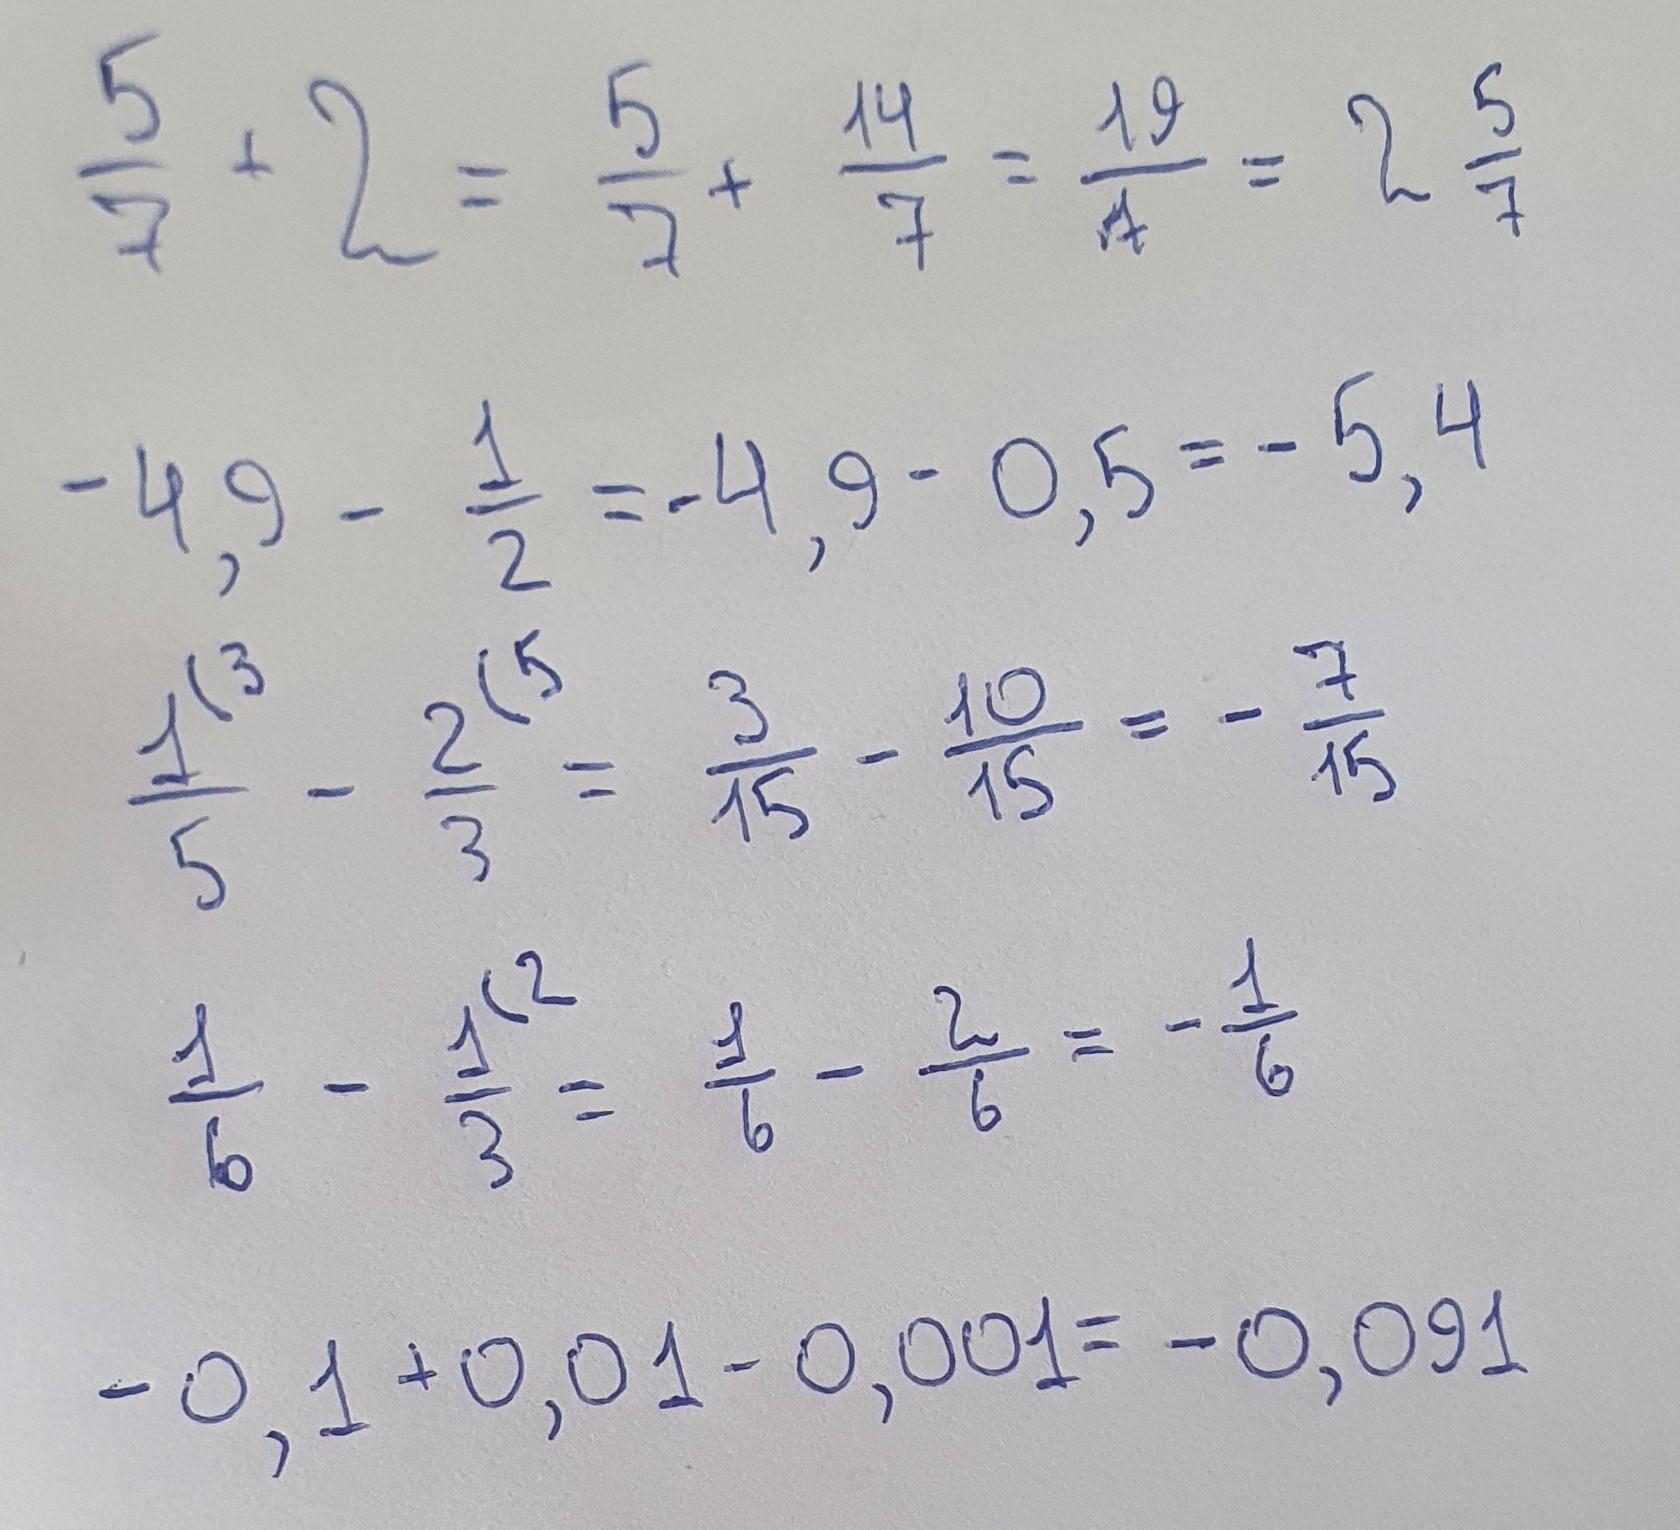 5/7 + 2 = 5/7 + 14/7 = 19/7 = 2 5/7
-4,9 - 1/2 = -4,9 - 0,5 = -5,4
1(3/5 - 2(5/3 = 3/15 - 10/15 = - 7/15
1/6 - 1(2/3 = 1/6 - 2/6 = - 1/6
-0,1+0,01-0,001=-0,091